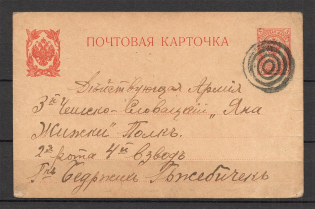 ПОЧТОВАЯ КАРТОЧКА
Дѣйствующая Армія
3й Чешско-Словацкій „Яна
Жижки" Полкъ.
2я рота 4й Взводъ
Бедржиха